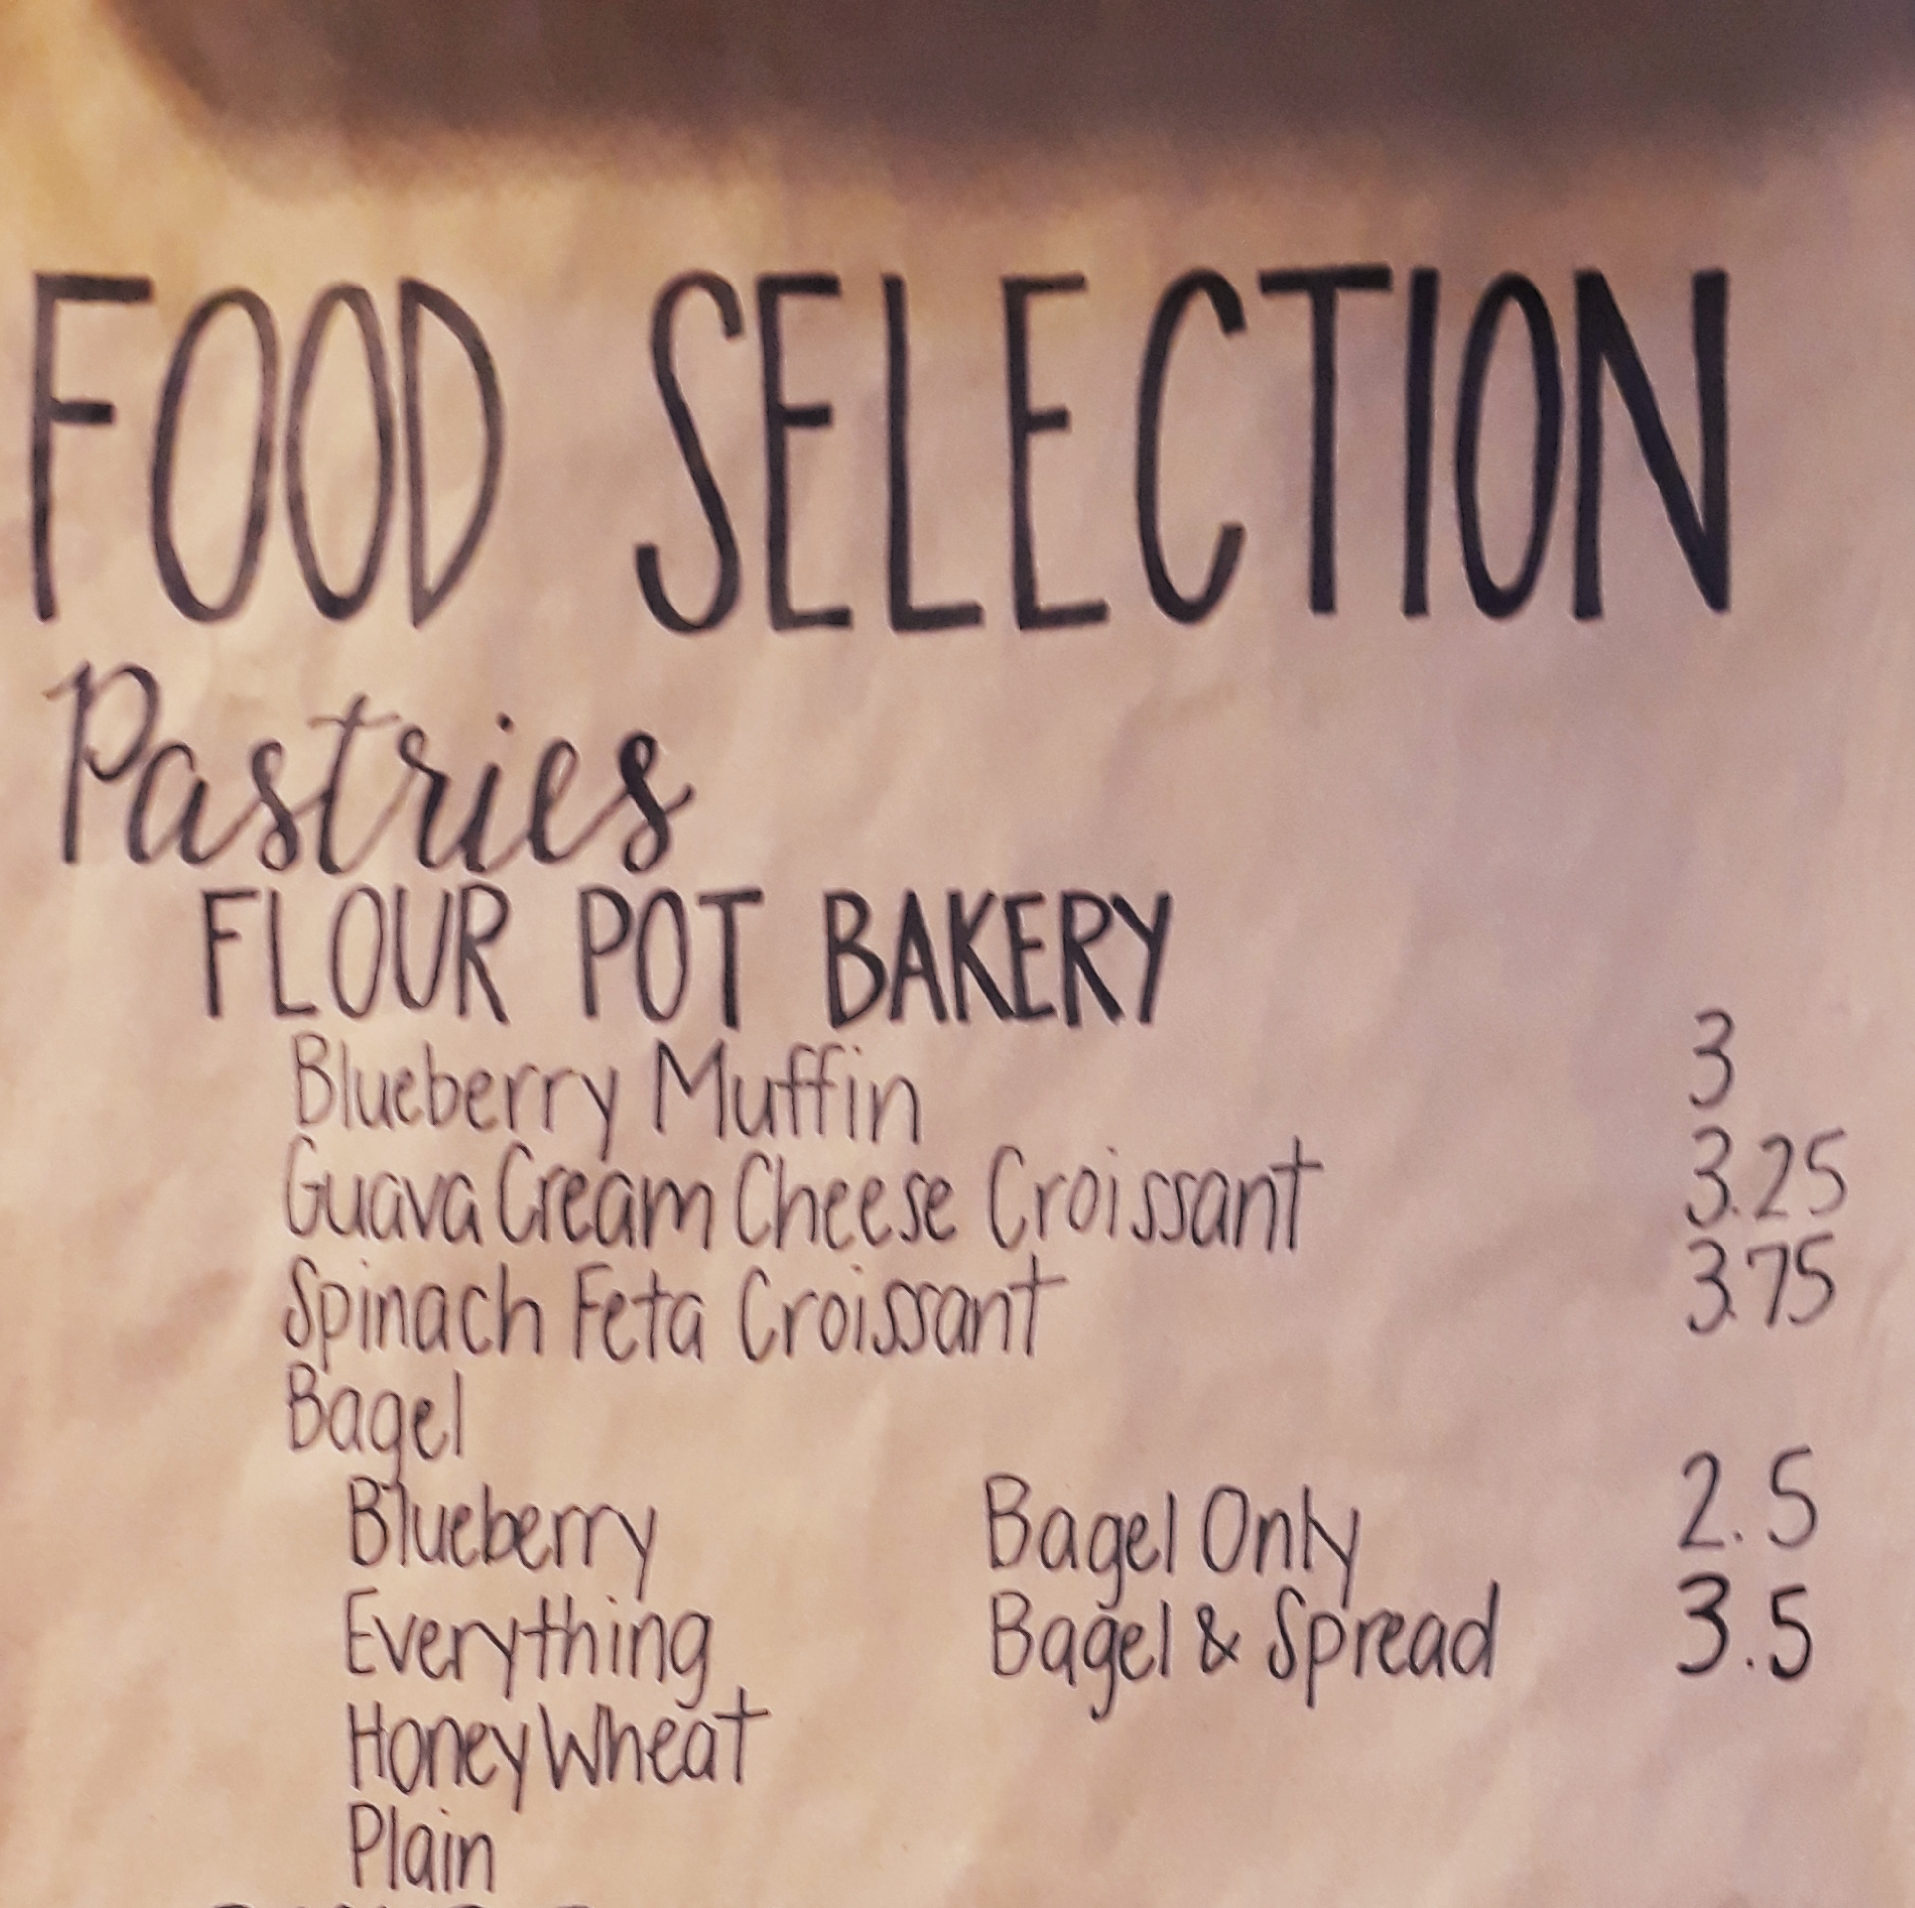 FOOD SELECTION
Pastries
FLOUR POT BAKERY
Blueberry Muffin 3
Guava Cream Cheese Croissant 3.25
Spinach Feta Croissant 3.75
Bagel
Blueberry Bagel Only 2.5
Everything Bagel & Spread 3.5
Honey Wheat
Plain